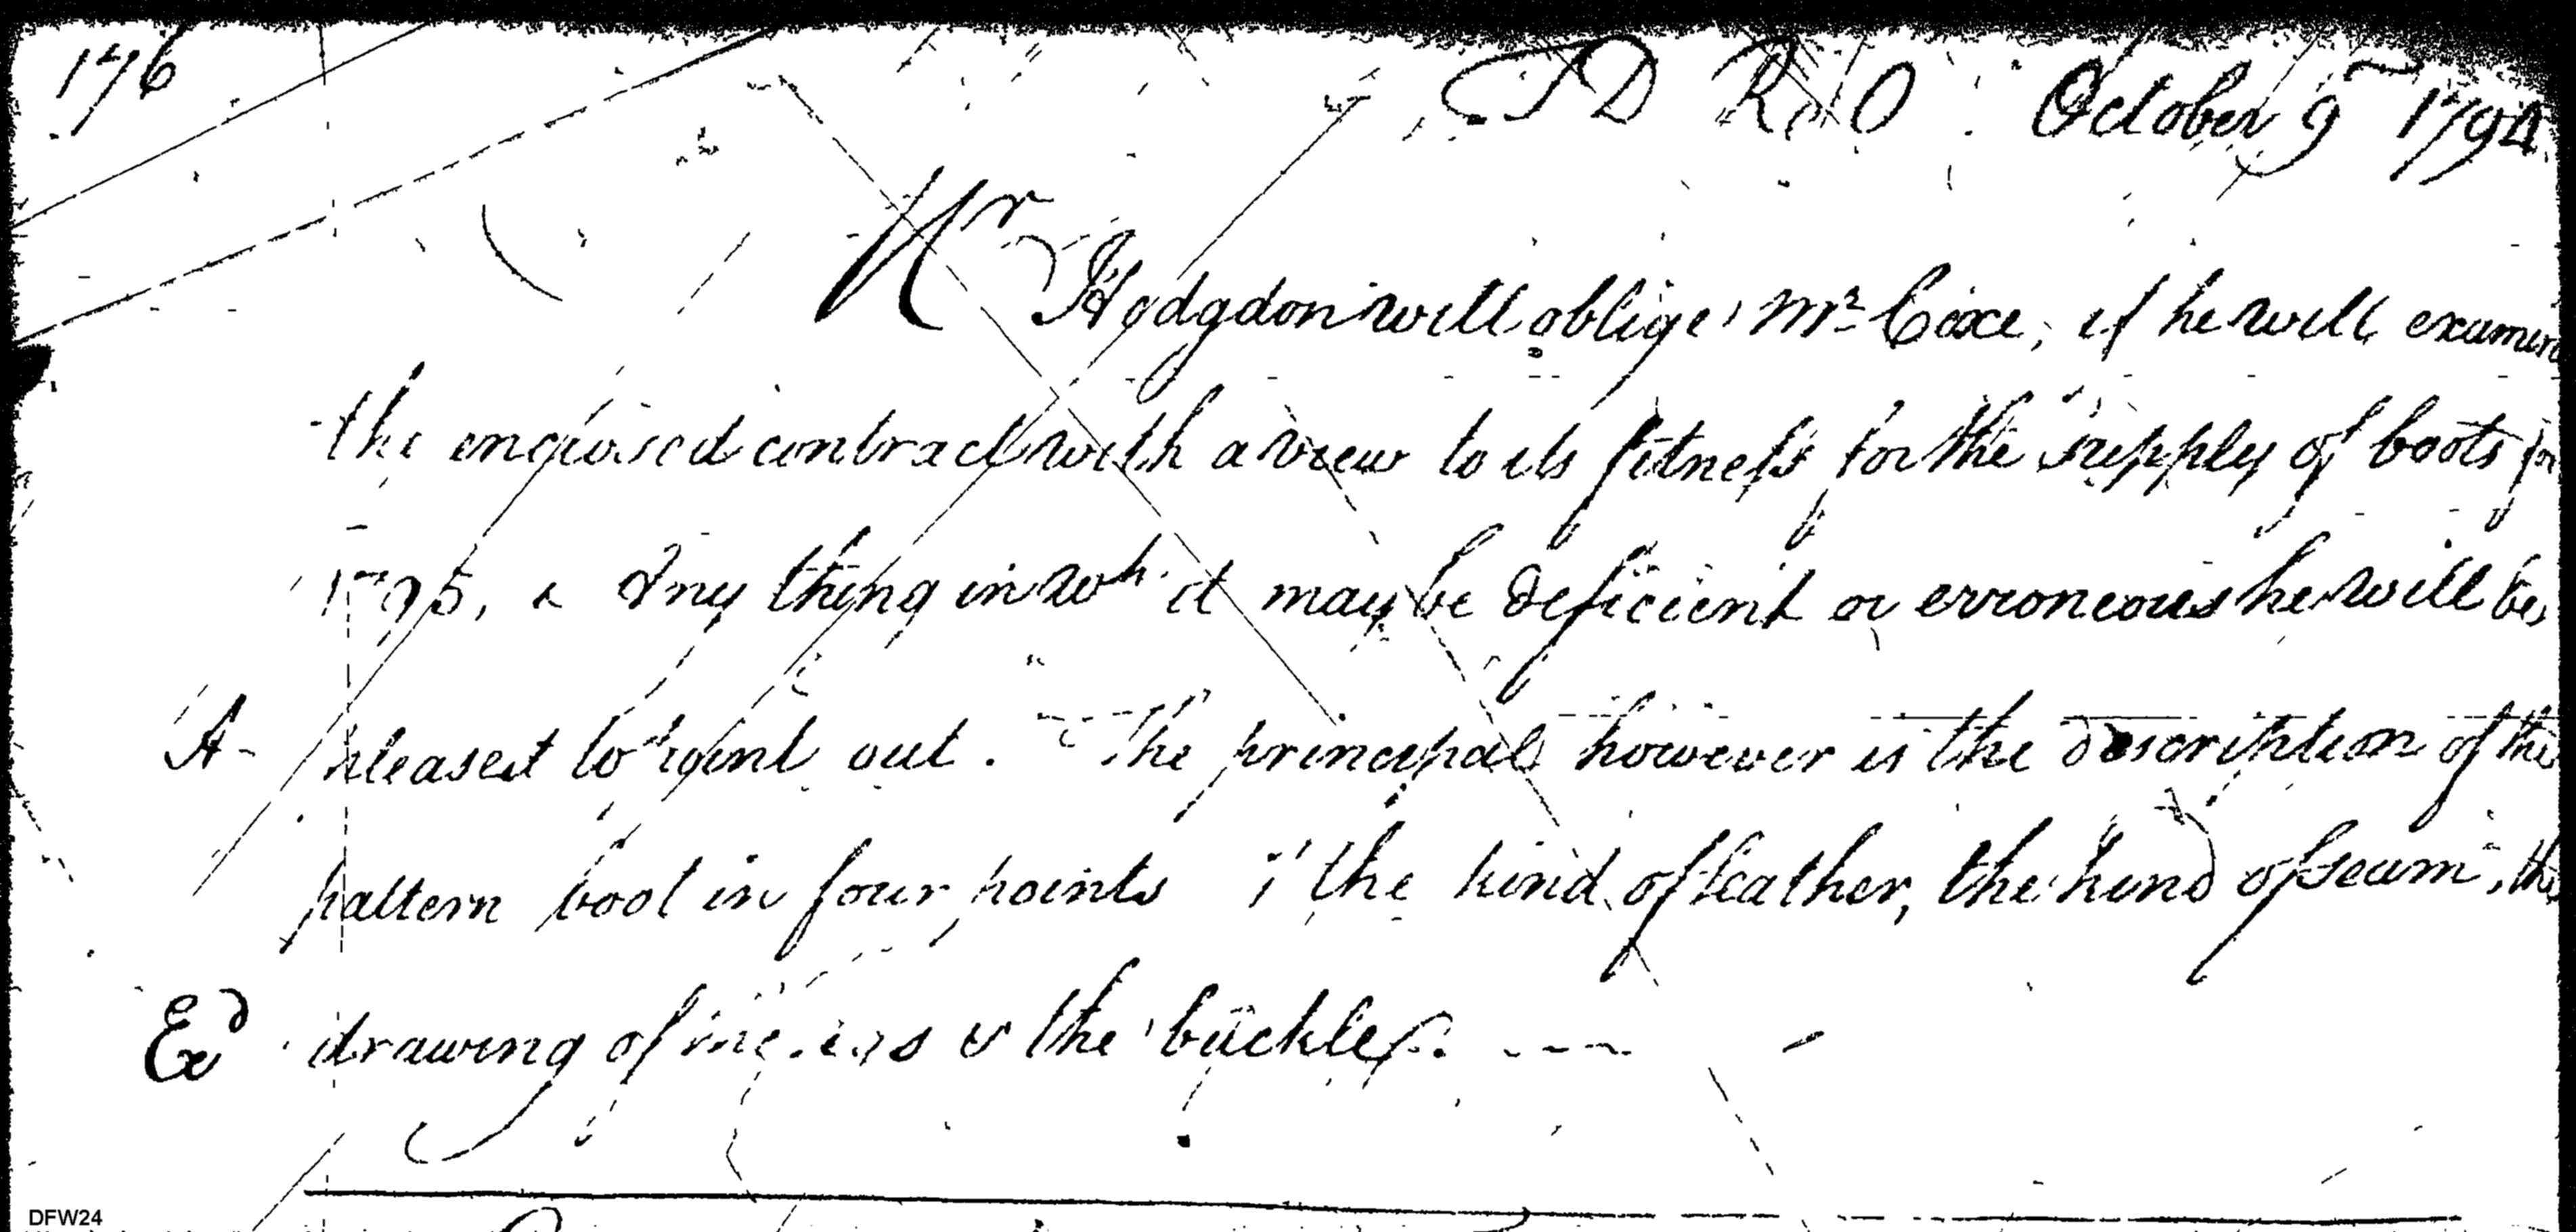 176
T D R O October 9 1794
Mr
Hodgdon will oblige Mr Coxe, if he will examine
the enclosed contract with a view to its fitness for the supply of boots for
1795, & Any thing in wh. it may be deficient or erroneous he will be
A pleased to point out. The principal however is the description of the
pattern boot in four points the kind of leather, the kind of seam, the
Exd drawing of & the buckles.
DFW24